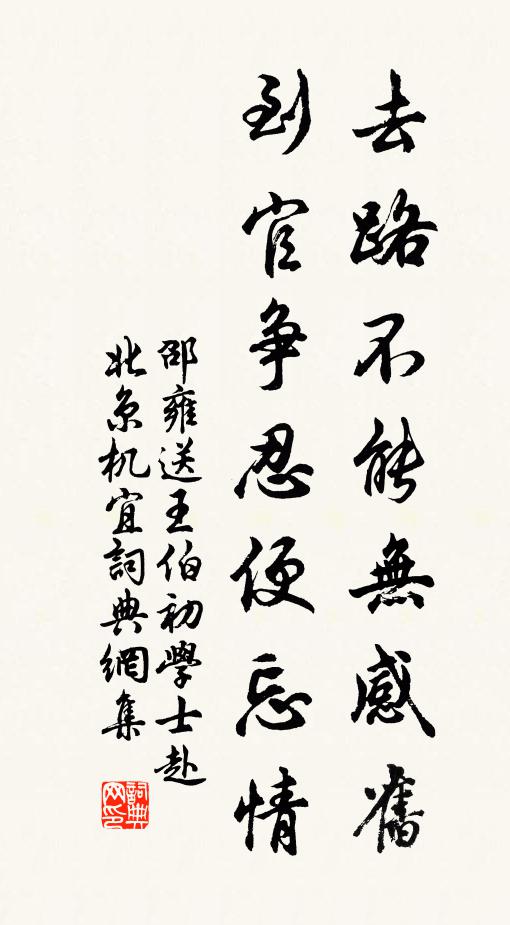 去路不能無感舊
到官争忍便忘情
邵雍送王伯初學士赴
北京机宜詞典網集
詞典网印